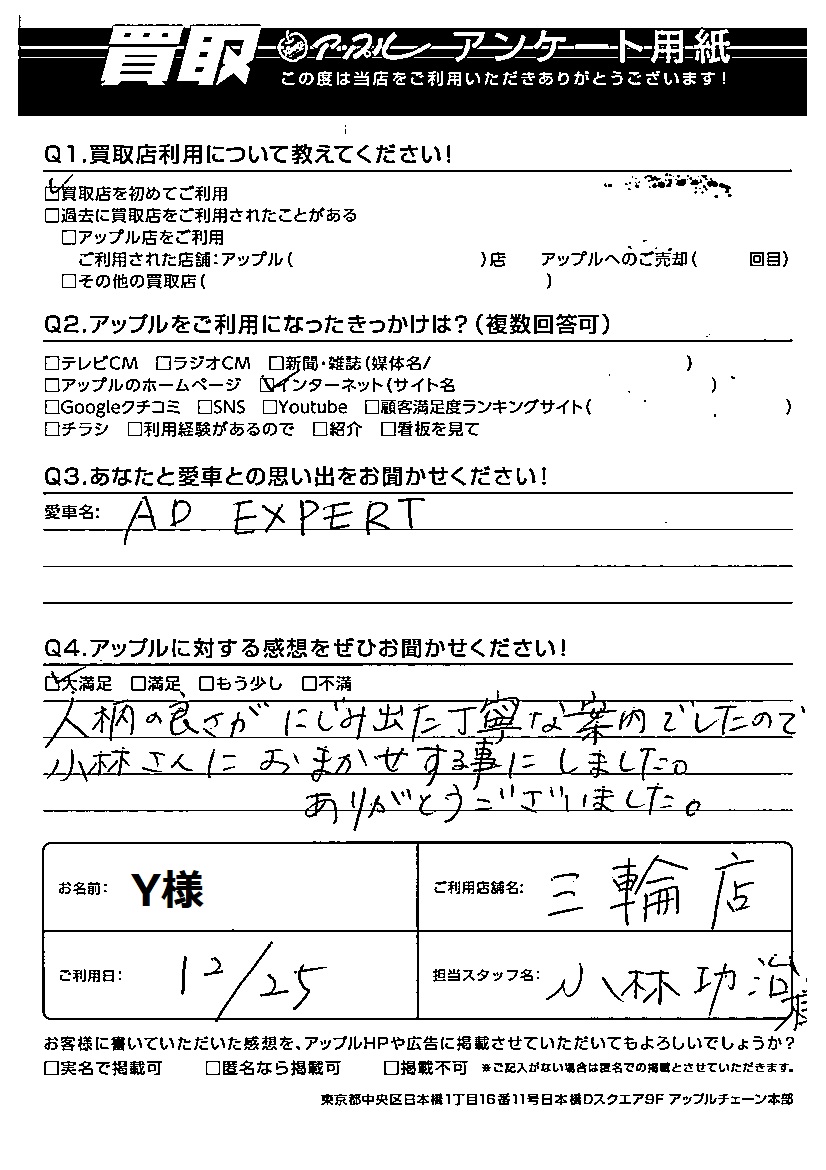 買取 アップル アンケート用紙
この度は当店をご利用いただきありがとうございます!
Q1.買取店利用について教えてください!
☑買取店を初めてご利用
□過去に買取店をご利用されたことがある
□アップル店をご利用
ご利用された店舗:アップル( )店 アップルへのご売却( 回目)
□その他の買取店( )
Q2.アップルをご利用になったきっかけは?(複数回答可)
□テレビCM □ラジオCM □新聞・雑誌(媒体名/ )
□アップルのホームページ ☑インターネット(サイト名 )
□Googleクチコミ □SNS □Youtube □顧客満足度ランキングサイト( )
□チラシ □利用経験があるので □紹介 □看板を見て
Q3.あなたと愛車との思い出をお聞かせください!
愛車名: AD EXPERT
Q4.アップルに対する感想をぜひお聞かせください!
☑大満足 □満足 □もう少し □不満
人柄の良さがにじみ出た丁寧な案内でしたので
小林さんにおまかせする事にしました。
ありがとうございました。
お名前: Y様 ご利用店舗名: 三輪店
ご利用日: 12/25 担当スタッフ名: 小林功治様
お客様に書いていただいた感想を、アップルHPや広告に掲載させていただいてもよろしいでしょうか?
□実名で掲載可 □匿名なら掲載可 □掲載不可 ※ご記入がない場合は匿名での掲載とさせていただきます。
東京都中央区日本橋1丁目16番11号日本橋Dスクエア9F アップルチェーン本部